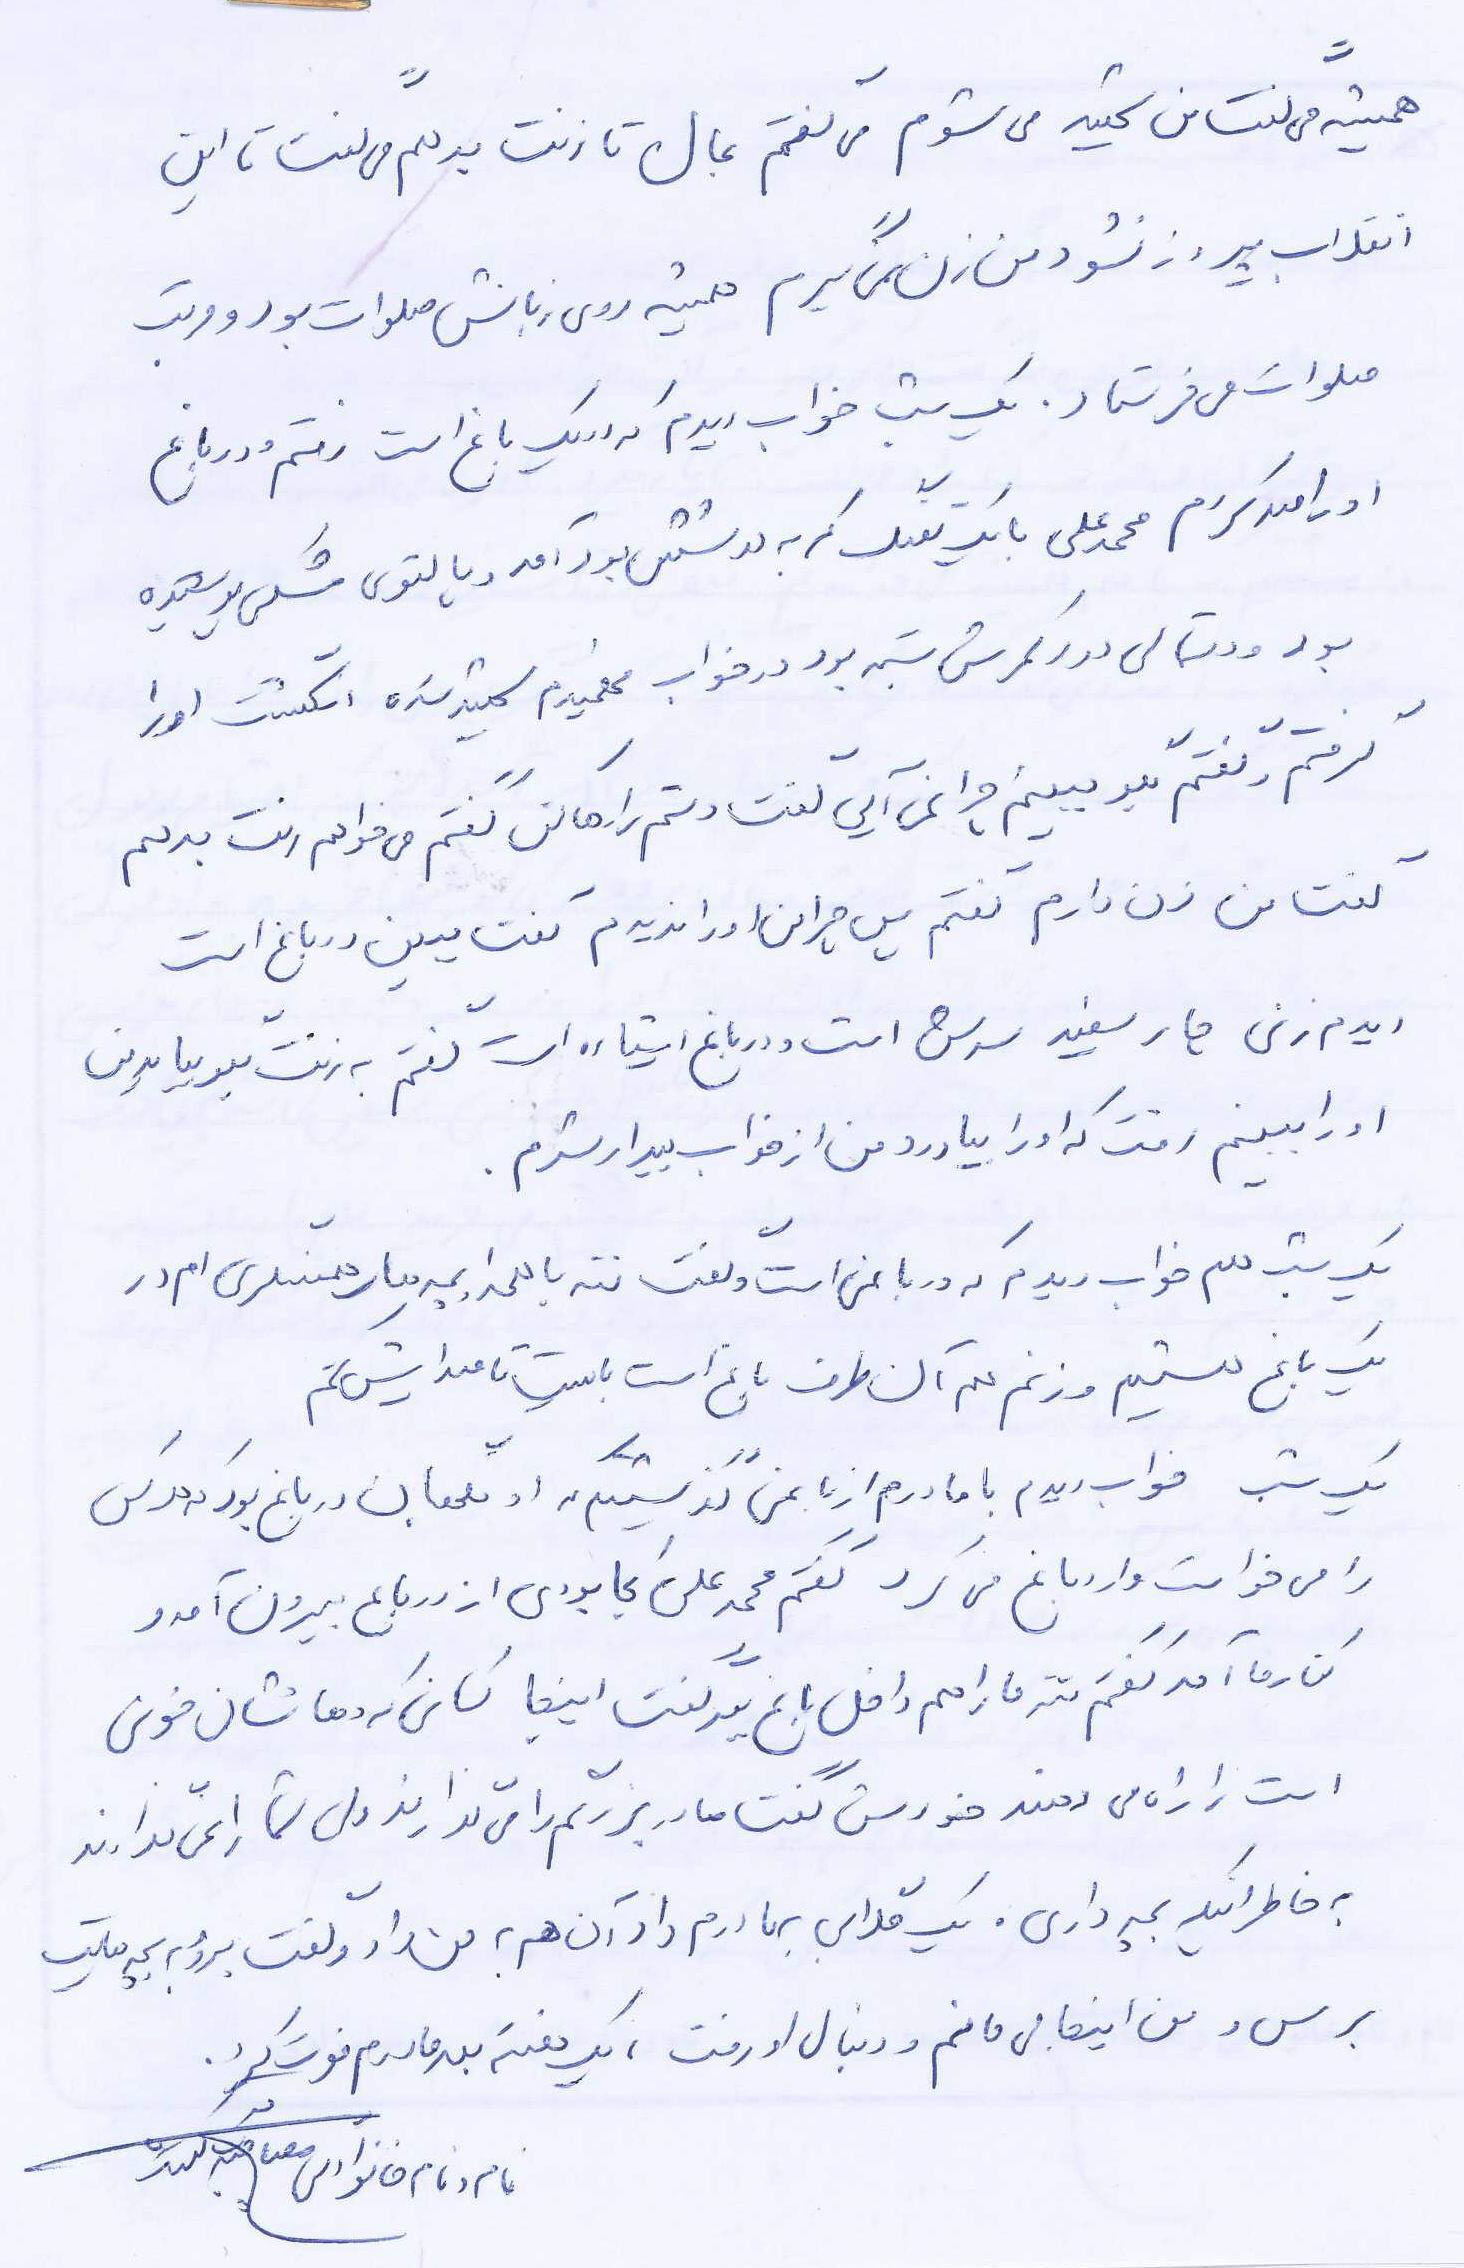 همیشه می گفت من شهید می شوم می گفتم بمان تا زنت بدهم می گفت تا این
انقلاب پیروز نشود من زن نمی گیرم همیشه روی زبانش صلوات بود و مرتب
صلوات می فرستاد. یک شب خواب دیدم که در یک باغ است رفتم و در باغ
او را صدا کردم محمدعلی با یک تفنگ که به دوشش بود آمد و پالتوی مشکی پوشیده
بود و دستمالی دور کمرش بسته بود در خواب فهمیدم شهید شده انگشت او را
گرفتم و گفتم بگو ببینم چرا نمی آیی گفت دستم را رها کن گفتم می خواهم زنت بدهم
گفت من زن دارم گفتم پس چرا من او را ندیدم گفت ببین در باغ است
دیدم زنی چادر سفید سرش است و در باغ ایستاده است گفتم به زنت بگو بیاید من
او را ببینم رفت که او را بیاورد من از خواب بیدار شدم.
یک شب هم خواب دیدم که در باغی است و گفت ننه با همه بچه های همسنگری ام در
یک باغ هستیم و زنم هم آن طرف باغ است بایست تا صدایش کنم
یک شب خواب دیدم با مادرم از باغی گذشتیم که او نگهبان در باغ بود که هر کس
را می خواست وارد باغ می کرد گفتم محمدعلی کجا بودی از در باغ بیرون آمد و
کنار ما آمد گفتم ننه ما را هم داخل باغ ببر گفت اینجا کسانی که دهانشان خونی
است را راه می دهند خودش گفت مادربزرگم را می گذارند ولی شما را نمی گذارند
به خاطر اینکه بچه داری. یک گلابی به مادرم داد آن هم به من داد و گفت برو به بچه هایت
برس و من اینجا می مانم و دنبال او رفت، یک هفته بعد مادرم فوت کرد.
نام و نام خانوادگی مصاحبه کننده